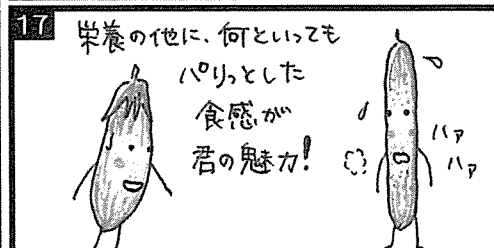 17
栄養の他に、何といっても
パリっとした
食感が
君の魅力!
ハァ
ハァ